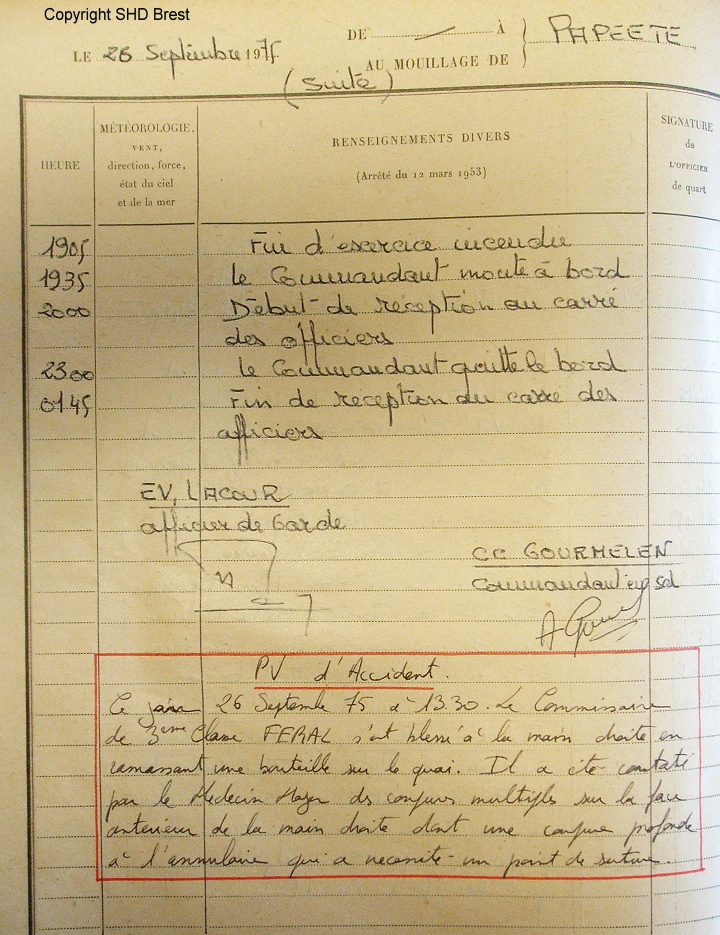 Copyright SHD Brest
LE 26 Septembre 1975
DE — À
AU MOUILLAGE DE
PAPEETE
(Suite)
HEURE
MÉTÉOROLOGIE,
VENT,
direction, force,
état du ciel
et de la mer
RENSEIGNEMENTS DIVERS
(Arrêté du 12 mars 1953)
SIGNATURE
de
L'OFFICIER
de quart
1905 Fin d'exercice incendie
1935 le Commandant monte à bord
2000 Début de réception au carré
des officiers
2300 le Commandant quitte le bord
0145 Fin de reception au carre des
officiers
EV, LACOUR
officier de Garde
CC GOURMELEN
Commandant en sd
PV d'Accident.
Ce jour 26 Septembre 75 à 13.30. Le Commissaire
de 3eme Classe FERAL s'est blessé à la main droite en
ramassant une bouteille sur le quai. Il a été constaté
par le Medecin Major des coupures multiples sur la face
anterieur de la main droite dont une coupure profonde
à l'annulaire qui a necessité un point de suture.